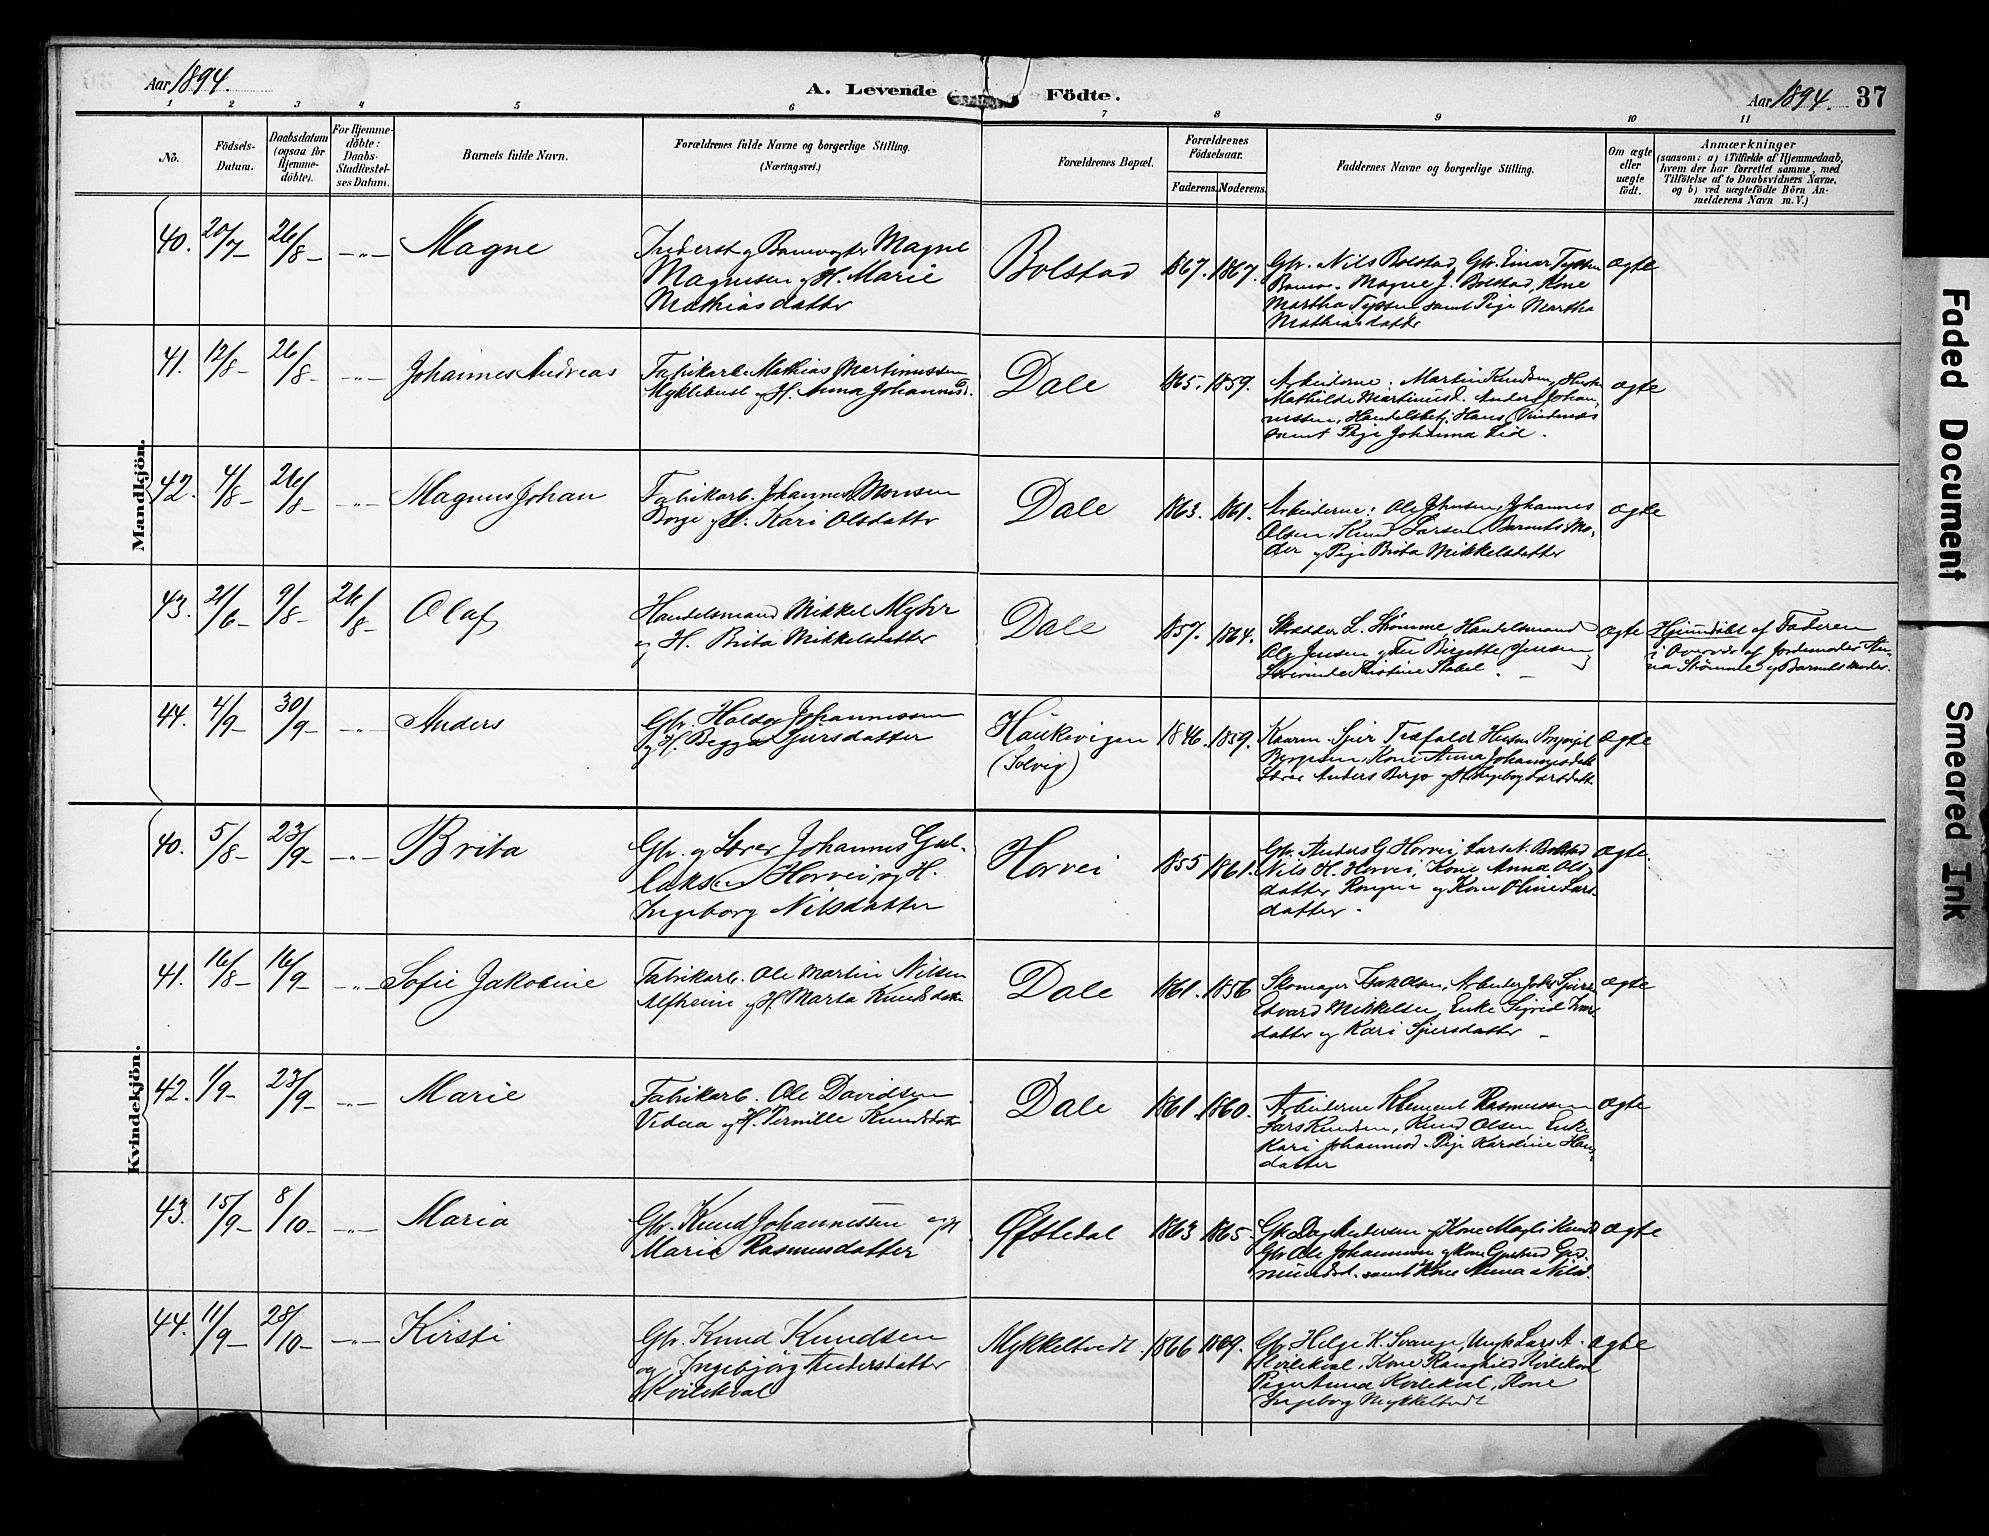 Aar 1894.
A. Levende Födte.
Aar 1894. 37
1 2 3 4 5 6 7 8 9 10 11
No.
Födsels-Datum.
Daabsdatum (ogsaa for Hjemme-döbte).
For Hjemme-döbte: Daabs-Stadfæstel-ses Datum.
Barnets fulde Navn.
Forældrenes fulde Navne og borgerlige Stilling. (Næringsvei.)
Forældrenes Bopæl.
Forældrenes Födselsaar.
Faderens. Moderens.
Faddernes Navne og borgerlige Stilling.
Om ægte eller uægte födt.
Anmærkninger
(saasom: a) i Tilfælde af Hjemmedaab,
hvem der har forrettet samme, med
Tilföielse af to Daabsvidners Navne,
og b) ved uægtefödte Börn An-
melderens Navn m. V.)
Mandkjön.
40. 20/7 26/8 -"- Magne
Inderst og Banevogter Magne
Magnesen og H. Marie
Mathiasdatter
Bolstad 1867. 1867.
Gbr. Nils Bolstad, Gbr. Einar Tyssen
Magne J. Bolstad, Kone
Martha Tyssen samt Pige Martha
Mathiasdatter
ægte
41. 12/8 26/8 -"- Johannes Andreas
Fabrikarb. Mathias Martinussen
Myklebust og H. Anna Johannesd.
Dale 1865. 1859.
Arbeiderne: Martin Knudsen,
Mathilde Martinusd. Anders Johan-
nessen, Handelsbetj. Hans
samt Pige Johanna Lid.
ægte
42. 4/8 26/8 -"- Magnus Johan
Fabrikarb. Johannes Monsen
Borge og H. Kari Olsdattr
Dale 1863. 1861.
Arbeiderne: Ole Johnsen, Johannes
Olsen, Knud Larsen. Barnets Mo-
der og Pige Brita Mikkelsdatter
ægte
43. 21/6 9/8 26/8 Olaf
Handelsmand Mikkel Myhr
og H. Brita Mikkelsdatter
Dale 1857. 1864.
Skrædder L. Strømme, Handelsmand
Ole Jensen og Fru Birgitte Jensen
Kristine Stabel.
ægte
Hjemdøbt af Faderen
i Overvær af Jordemoder An-
na Strømme og Barnets Moder.
44. 4/9 30/9 -"- Anders
Gbr. Haldor Johannessen
og H. Begga Gjersdatter
Haukevigen
(Solvig)
1846. 1859.
Kaarm. Sjur Træfald
Kone Anna Johannesdatt.
Lærer Anders Bergo og H. Ingeborg Larsdatt.
ægte
Kvindekjön.
40. 5/8 23/9 -"- Brita
Gbr. og Lærer Johannes Gul-
laksen Horvei, og H.
Ingeborg Nilsdatter
Horvei 1855 1861.
Gbr. Anders G. Horvei, Lars N. Bolstad
Nils H. Horvei, Kone Anna Ols-
datter og Kone Oline Lars-
datter.
ægte.
41. 16/8 16/9 -"- Sofie Jakobine
Fabrikarb. Ole Martin Nilsen
Alfheim og H. Marta Knudsdatt.
Dale 1861. 1856
Skomager Isak Olsen, Arbeider
Edvard Mikkelsen, Enke Sigrid
datter og Kari Sjursdatter
ægte
42. 1/9 23/9 -"- Marie
Fabrikarb. Ole Davidsen
Vidaa og H. Pernille Knudsdatt.
Dale 1861. 1860.
Arbeiderne Klement Rasmussen
Lars Knudsen, Knud Olsen Enke
Kari Johannesd. Pige Karoline Hans-
datter
ægte
43. 15/9 8/10 -"- Maria
Gbr. Knud Johannessen og H.
Marie Rasmusdatter
Øfstedal 1863 1865.
Gbr. Dag Andersen og Kone Magli
Gbr. Ole Johannessen og Kone
samt Kone Anna Nilsd.
ægte
44. 11/9 28/10 -"- Kirsti
Gbr. Knud Knudsen
og Ingebjørg Andersdatter
Kvilekval
Mykkeltvedt. 1866 1869.
Gbr. Helge K. Svange, Ungk. Lars A.
Kvilekval, Kone Ranghild Kvilekval
Pige Anna Kvilekval, Kone
Ingeborg Mykkeltvedt
ægte
Faded Document
Smeared Ink